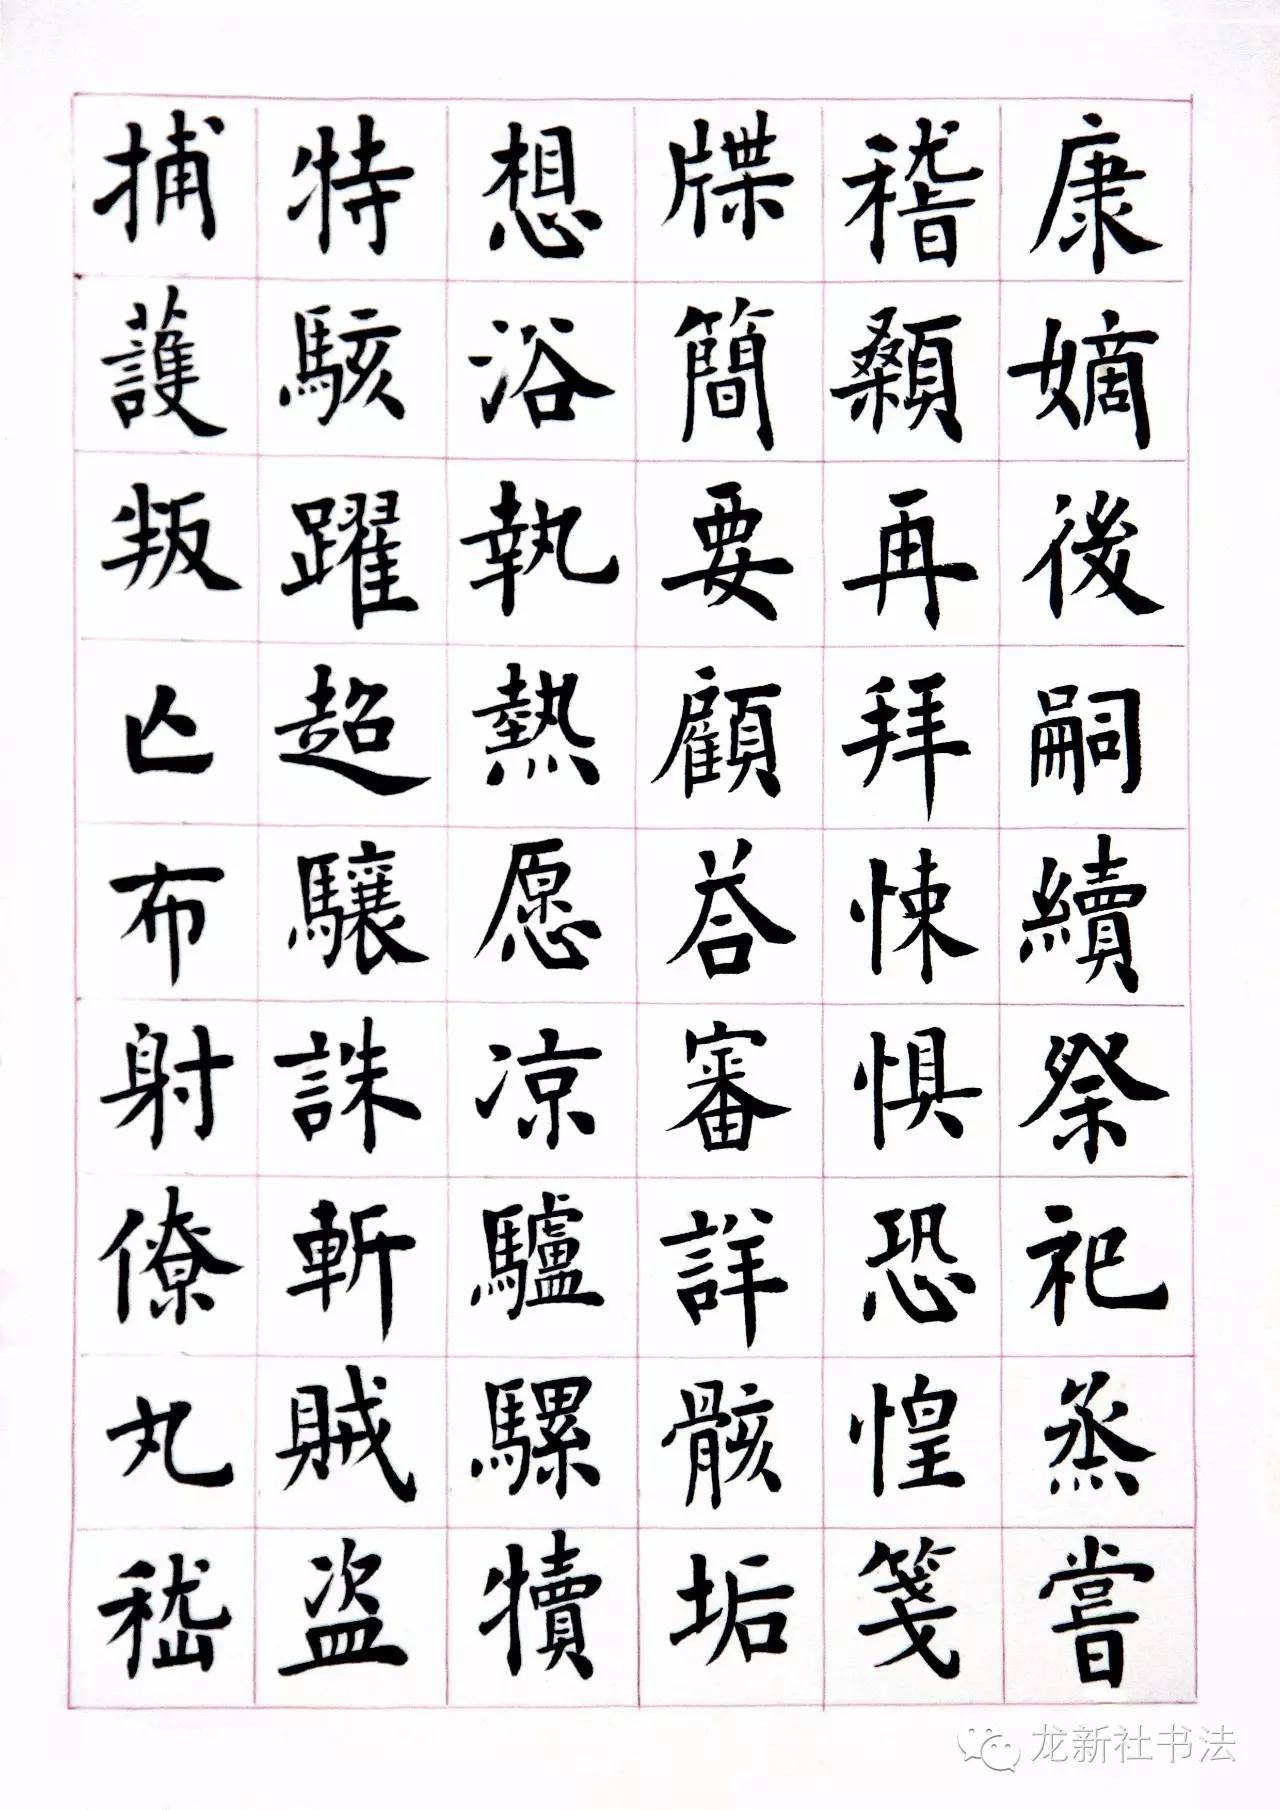 康嫡後嗣續祭祀烝嘗
稽顙再拜悚懼恐惶箋
牒簡要顧答審詳骸垢
想浴執熱愿凉驢騾犢
特駭躍超驤誅斬賊盗
捕護叛亡布射僚丸嵇
龙新社书法